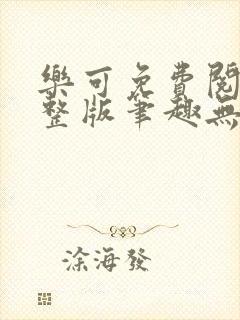 樂可免費閱
整版筆趣無
涂海發